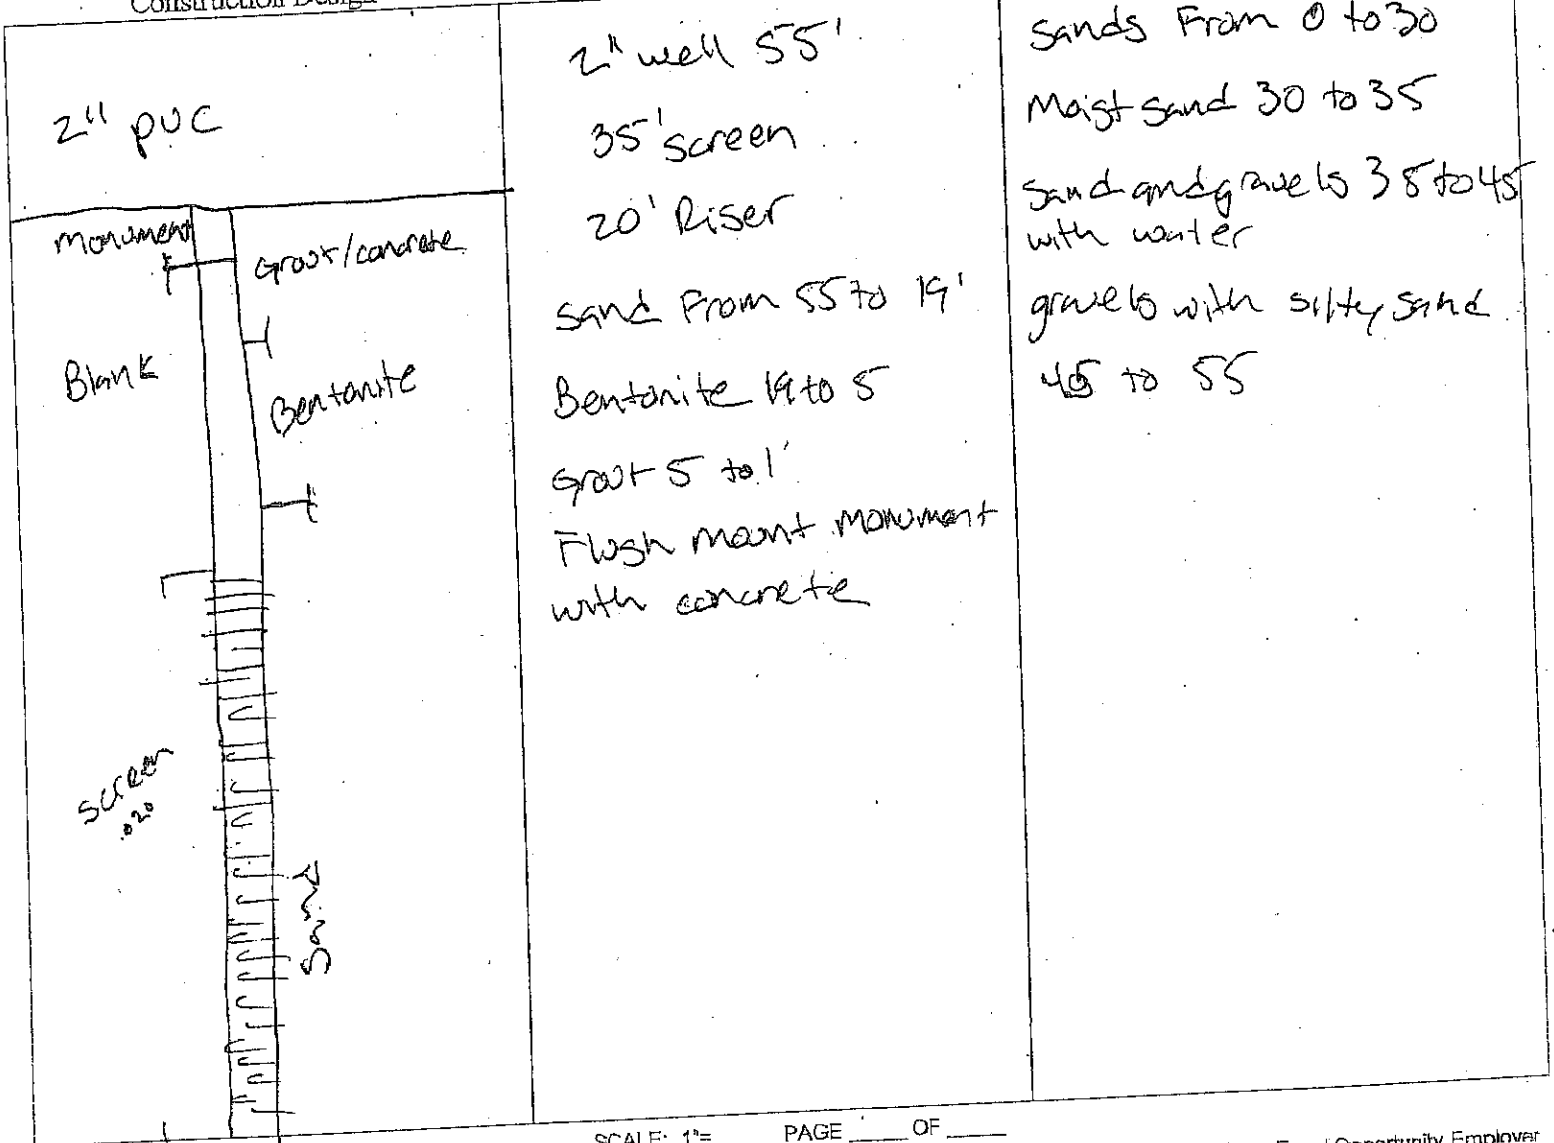 Construction Design
2" PVC
Monument
Grout/concrete
Blank
Bentonite
screen
.020
Sand
2" well 55'
35' screen
20' Riser
sand From 55 to 19'
Bentonite 19 to 5
Grout 5 to 1'
Flush mount monument
with concrete
sands From 0 to 30
Moist sand 30 to 35
sand and gravels 35 to 45
with water
gravels with silty sand
45 to 55
SCALE: 1"= PAGE ____ OF ____
Opportunity Employer